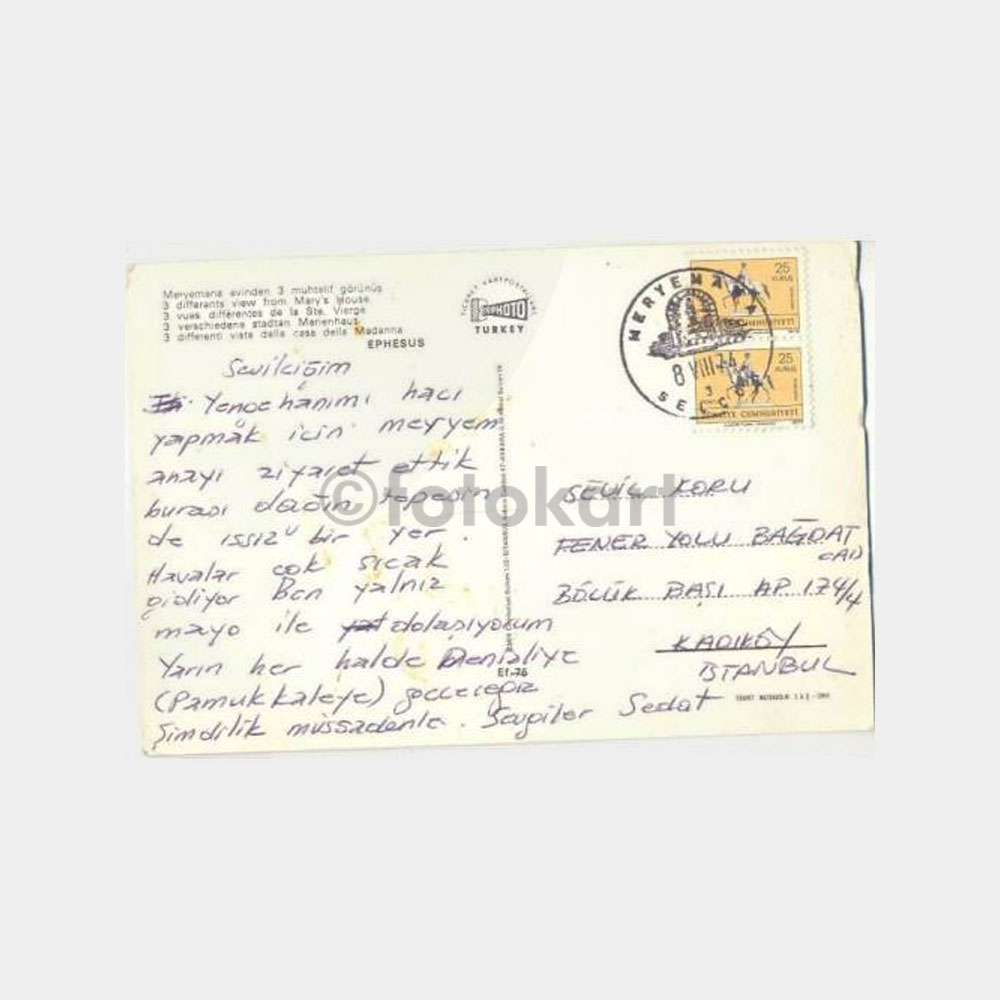 Meryemana evinden 3 muhtelif görünüş
3 differants view from Mary's House
3. vues différences de la Ste. Vierge
3 verschiedene stadtan Marienhaus
3 differenti viste della casa della Madanna
EPHESUS
TICARET KARTPOSTALLARI
PHOTO
TURKEY
MERYEMANA
8 VIII 74
SELÇUK
25
KURUŞ
TÜRKİYE CUMHURİYETİ
25
KURUŞ
TÜRKİYE CUMHURİYETİ
Sevilciğim
Yenge hanımı hacı
yapmak için meryem
anayı ziyaret ettik
burası dağın tepesin
de ıssız bir yer.
Havalar çok sıcak
gidiyor Ben yalnız
mayo ile dolaşıyorum
Yarın her halde Denizliye
(Pamukkaleye) geçeceğiz
Şimdilik müssadenle. Sevgiler Sedat
Ef-76
SEVİL KORU
FENER YOLU BAĞDAT
CAD
BÖLÜK BAŞI AP. 174/4
KADIKÖY
İSTANBUL
©fotokart